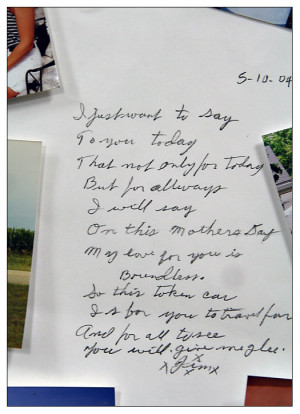 5-10-04
I just want to say
To you today
That not only for today
But for allways
I will say
On this Mothers Day
My love for you is
Boundless.
So this token car
Is for you to travel far
And for all to see
You will give me glee.
x
x Jim x
x